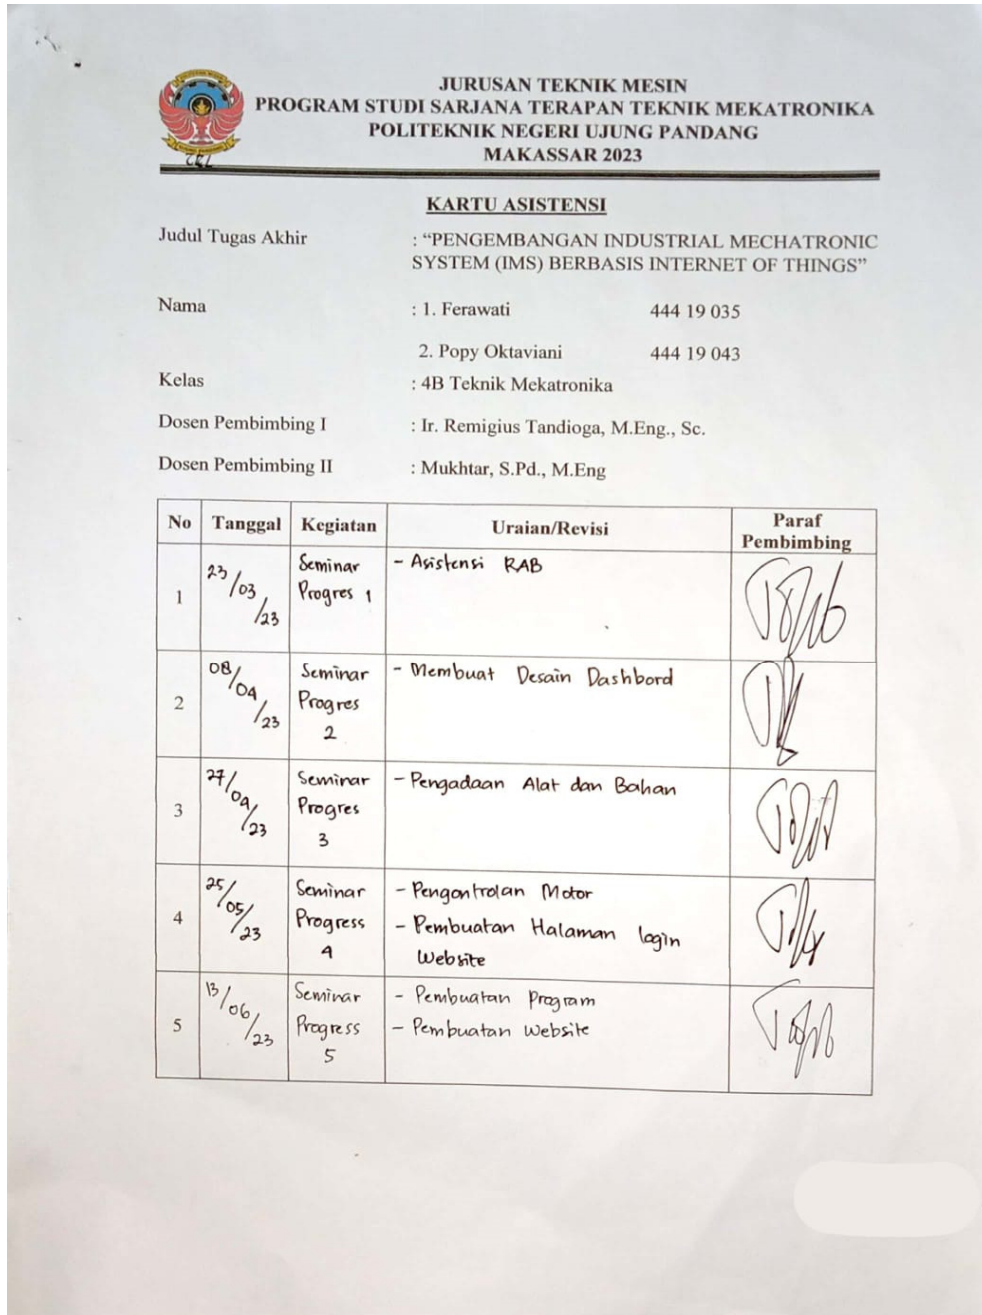 JURUSAN TEKNIK MESIN
PROGRAM STUDI SARJANA TERAPAN TEKNIK MEKATRONIKA
POLITEKNIK NEGERI UJUNG PANDANG
MAKASSAR 2023
KARTU ASISTENSI
Judul Tugas Akhir : “PENGEMBANGAN INDUSTRIAL MECHATRONIC
SYSTEM (IMS) BERBASIS INTERNET OF THINGS”
Nama : 1. Ferawati 444 19 035
2. Popy Oktaviani 444 19 043
Kelas : 4B Teknik Mekatronika
Dosen Pembimbing I : Ir. Remigius Tandioga, M.Eng., Sc.
Dosen Pembimbing II : Mukhtar, S.Pd., M.Eng
No Tanggal Kegiatan Uraian/Revisi Paraf
Pembimbing
1 23/03/23 Seminar - Asistensi RAB
Progres 1
2 08/04/23 Seminar - Membuat Desain Dashbord
Progres
2
3 27/04/23 Seminar - Pengadaan Alat dan Bahan
Progres
3
4 25/05/23 Seminar - Pengontrolan Motor
Progress - Pembuatan Halaman login
4 Website
5 13/06/23 Seminar - Pembuatan Program
Progress - Pembuatan Website
5